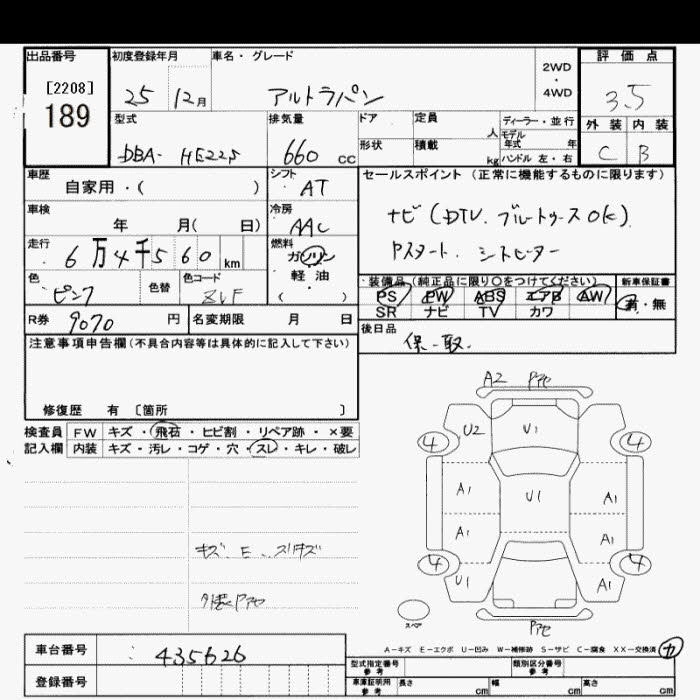 出品番号 初度登録年月 車名・グレード 評価点
[2208]
189
25 12月 アルトラパン 2WD・4WD 3.5
型式 排気量 ドア 定員 人 ディーラー・並行 外装 内装
モデル年式 年
DBA- HE22S 660 cc 形状 積載 kg ハンドル 左・右 C B
車歴 シフト セールスポイント (正常に機能するものに限ります)
自家用・( ) AT
車検 冷房 ナビ(DTV.ブルートゥースOK).
年 月( 日) AAC
走行 燃料 Pスタート. シートヒーター
6万4千560 km ガソリン
軽・油
( )
色 色替 色コード 装備品(純正品に限り○をつけてください) 新車保証書
ピンク ZVF PS PW ABS エアB AW 有・無
SR ナビ TV カワ
R券 9070 円 名変期限 月 日 後日品
保.取.
注意事項申告欄(不具合内容等は具体的に記入して下さい)
修復歴 有 〔箇所 〕
検査員 FW キズ・飛石・ヒビ割・リペア跡・×要
記入欄 内装 キズ・汚レ・コゲ・穴・スレ・キレ・破レ
A2 Pアセ
U2 U1
4 4
A1 U1 A1
A1 A1
4 4
U1 A1
スペア
Pアセ
キズ.E.スリキズ
外装Pアセ
A-キズ E-エクボ U-凹み W-補修跡 S-サビ C-腐食 XX-交換済 カ
車台番号 435626
登録番号
型式指定番号 参考 類別区分番号 参考
車庫証明用 参考 長さ cm 幅 cm 高さ cm